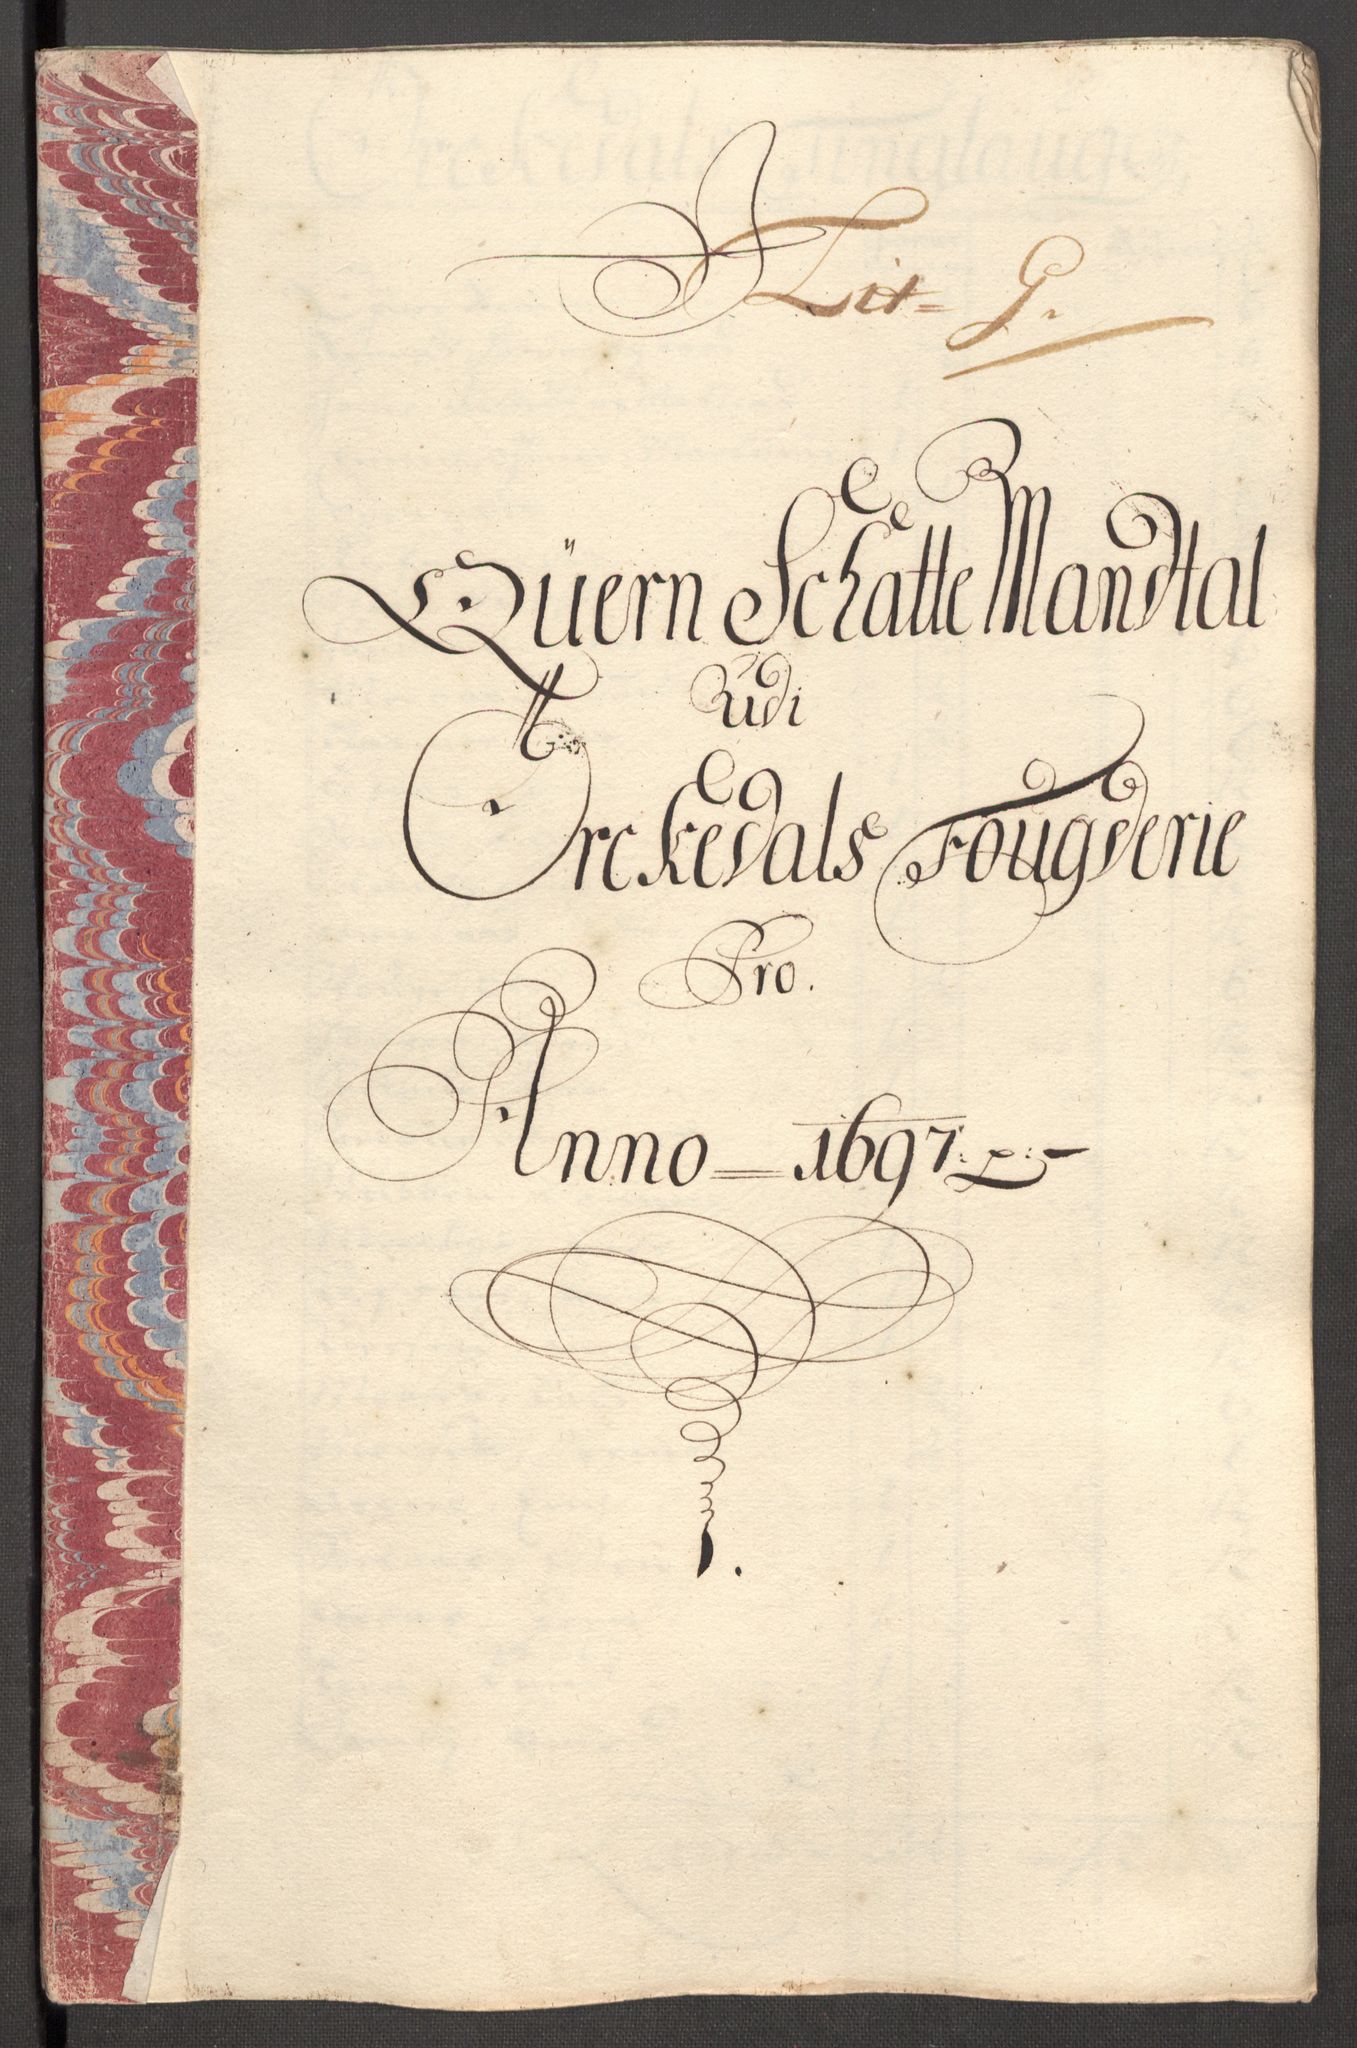 Lit= G.
Qüern Schatte Mandtal
Udi
Orckedals Fougderie
Pro.
Anno = 1697